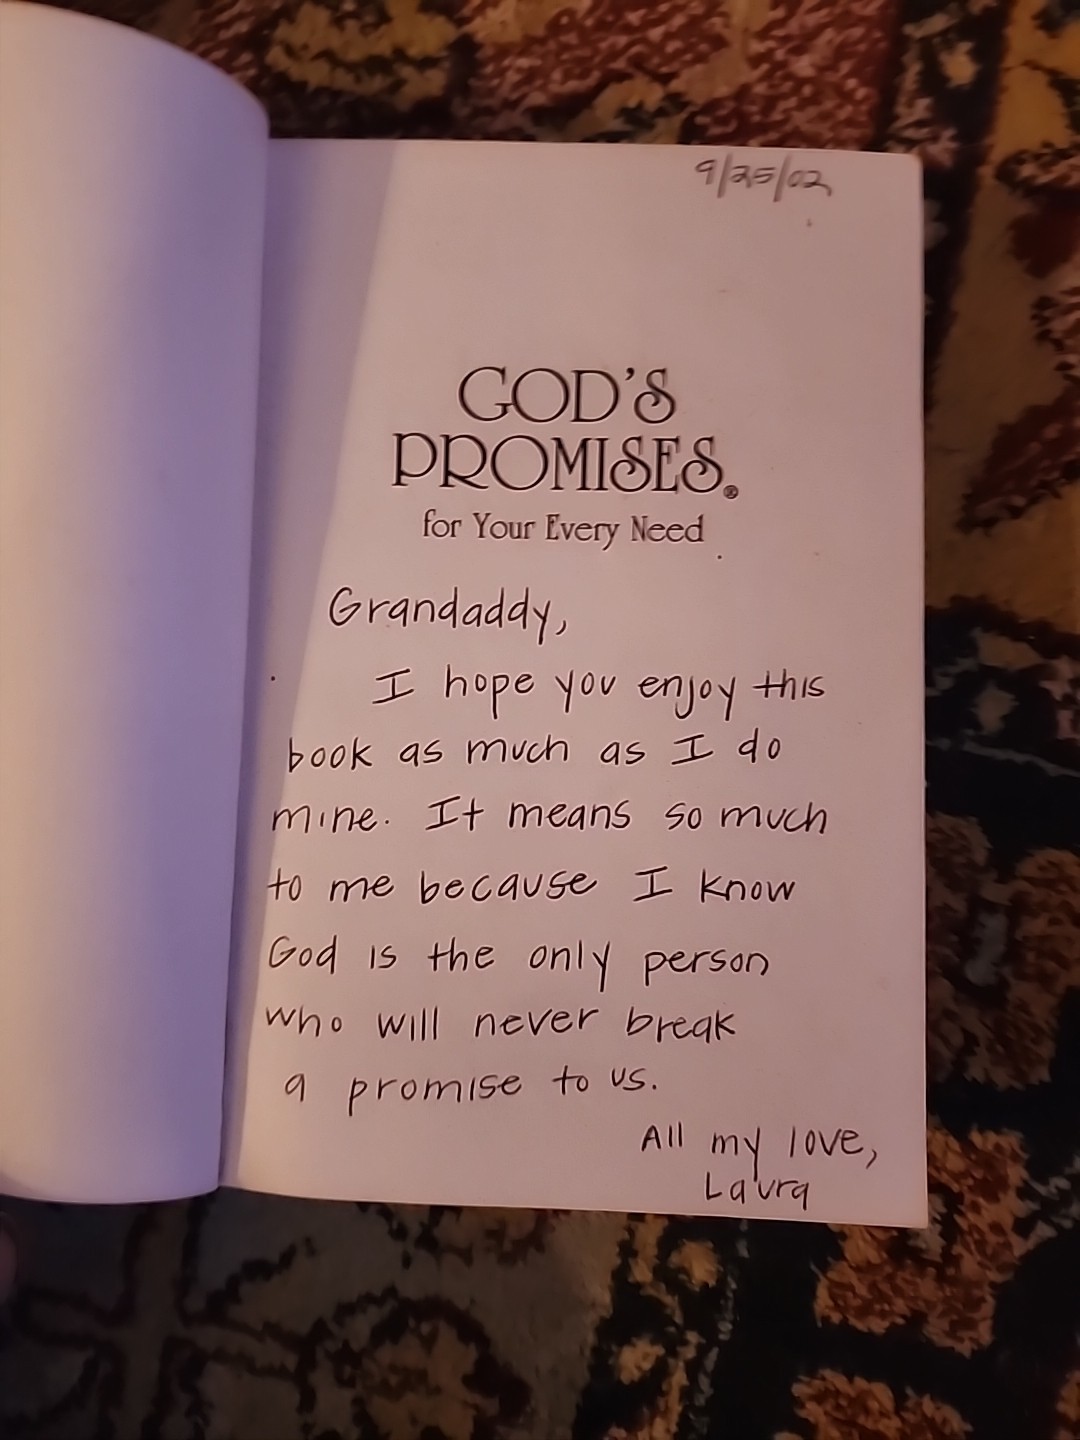 9/25/02
GOD'S
PROMISES®
for Your Every Need
Grandaddy,
I hope you enjoy this
book as much as I do
mine. It means so much
to me because I know
God is the only person
who will never break
a promise to us.
All my love,
Laura